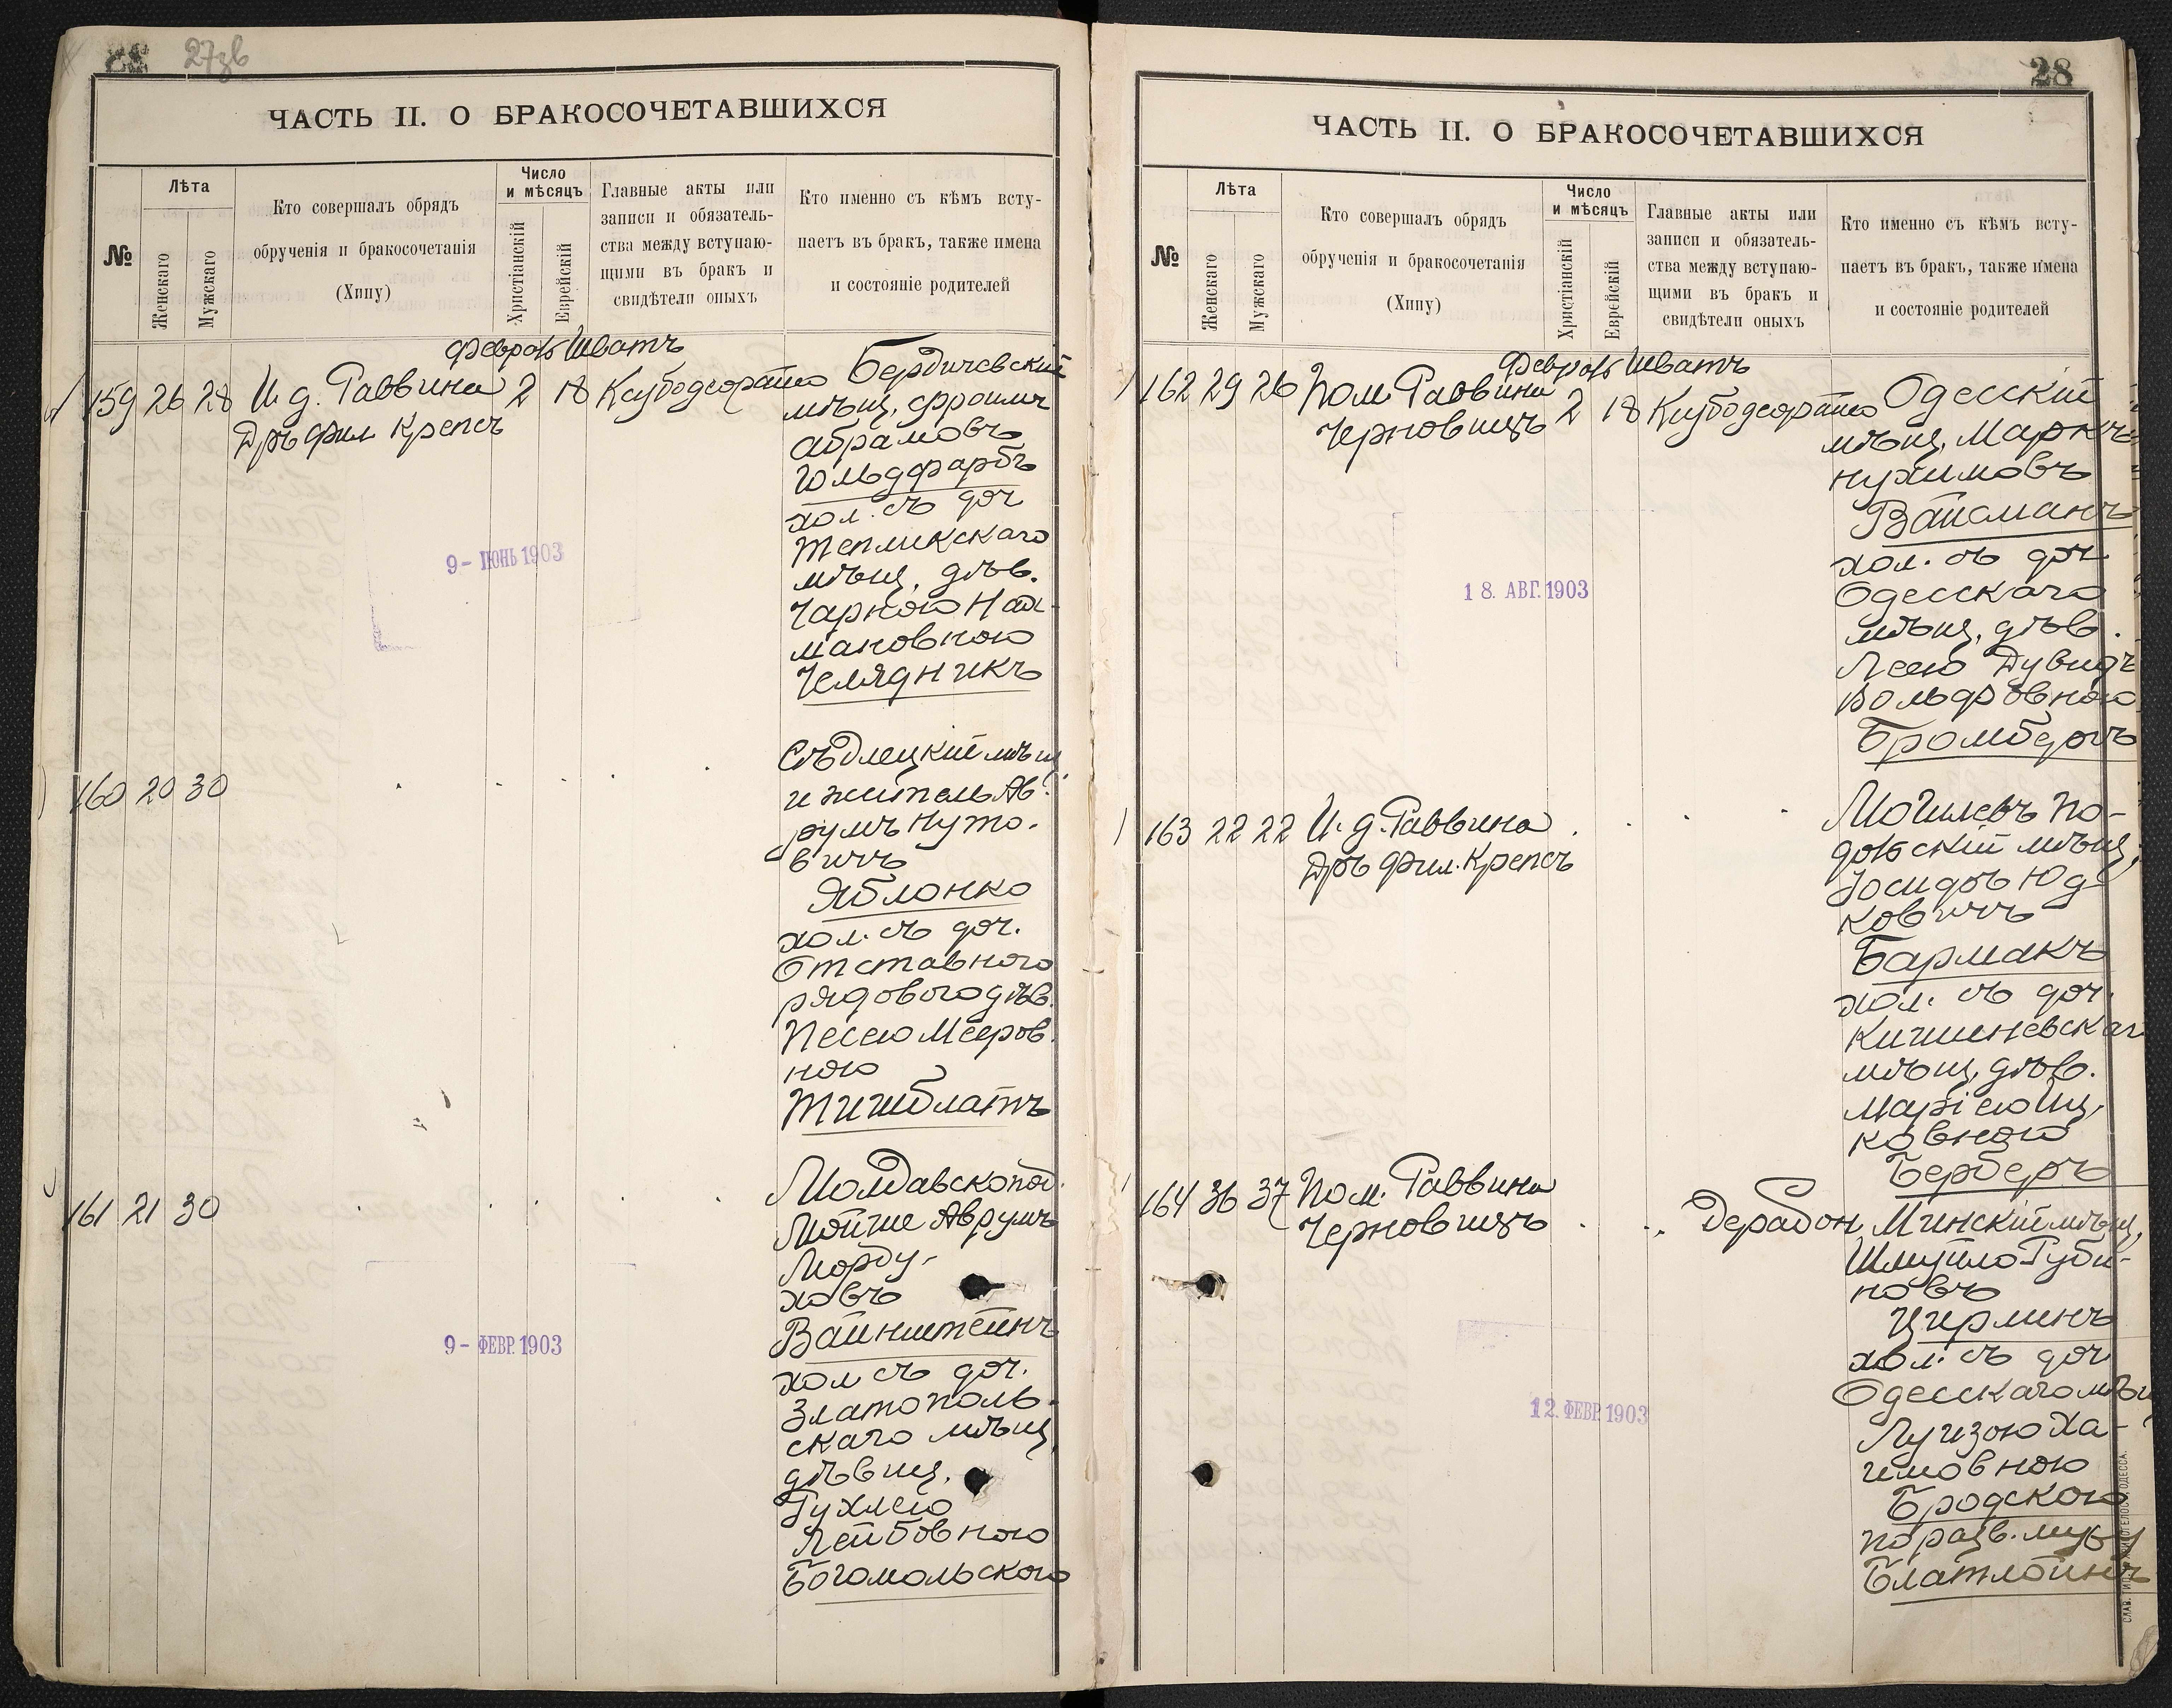 27зв
ЧАСТЬ II. О БРАКОСОЧЕТАВШИХСЯ
№
Лѣта
Женскаго
Мужскаго
Кто совершалъ обрядъ
обрученія и бракосочетанія
(Хипу)
Число
и мѣсяцъ
Христіанскій
Еврейскій
Главные акты или
записи и обязатель-
ства между вступаю-
щими въ бракъ и
свидѣтели оныхъ
Кто именно съ кѣмъ всту-
паетъ въ бракъ, также имена
и состояніе родителей
Шватъ
159 26 28 И. д. Раввина 2 18
Дръ фил Крепсъ
Бердичевскій
мѣщ. Фроимъ
Абрамовъ
Гольдфарбъ
хол. съ доч
Тепликскаго
мѣщ. дѣв.
Чарною Нах-
мановною
Челядникъ
9- ІЮНЬ 1903
160 20 30
Сѣдлецкій мѣщ
и житель Ав-
румъ Нуто-
вичъ
Яблонко
хол. съ доч.
Отставного
рядового дѣв.
Песею Мееров.
ною
Тишблатъ
161 21 30
Мойше Аврумъ
Морду-
ховъ
Вайнштейнъ
хол съ доч.
Златополь-
скаго мѣщ.
дѣвиц.
Рухлею
Лейбовною
Богомольскою
9- ФЕВР. 1903
28
ЧАСТЬ II. О БРАКОСОЧЕТАВШИХСЯ
№
Лѣта
Женскаго
Мужскаго
Кто совершалъ обрядъ
обрученія и бракосочетанія
(Хипу)
Число
и мѣсяцъ
Христіанскій
Еврейскій
Главные акты или
записи и обязатель-
ства между вступаю-
щими въ бракъ и
свидѣтели оныхъ
Кто именно съ кѣмъ всту-
паетъ въ бракъ, также имена
и состояніе родителей
Шватъ
162 29 26 Пом. Раввина 2 18
Черновицъ
Одесскій
мѣщ. Маркъ
Нухимовъ
Вайсманъ
хол. съ доч
Одесскаго
мѣщ. дѣв.
Леею Дувидъ
Вольфовною
Бромбергъ
18. АВГ. 1903
163 22 22 И. д. Раввина
Дръ фил. Крепсъ
Могилевъ По-
дольскій мѣщ.
Іосифъ Юд-
ковичъ
Бармакъ
хол. съ доч.
Кишиневскаг
мѣщ. дѣв.
Маріею Иц-
ковною
Берберъ
164 36 37 Пом. Раввина
Черновицъ
Дерабон
Минскій мѣщ.
Шмуйло Руби-
новъ
Цирлинъ
хол. съ доч
Одесскаго мѣщ
Луизою Ха-
имовною
Бродскою
по разв. мужу
12. ФЕВР. 1903